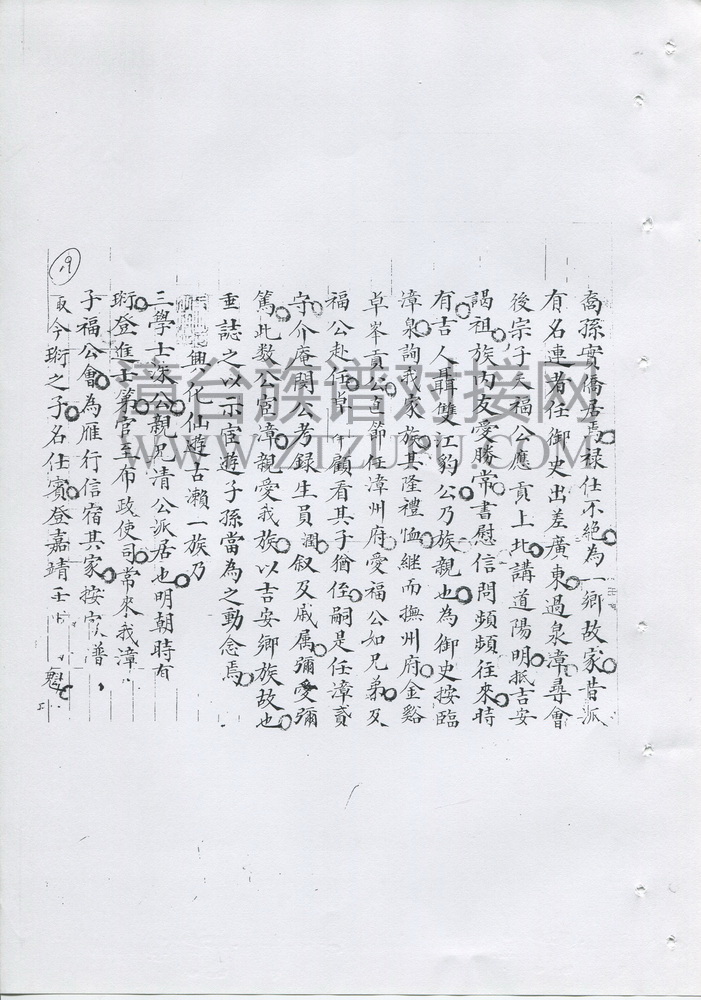 裔孫實僑居焉祿仕不絕為一鄉故家昔派
有名連者任御史出差廣東過泉漳尋會
後宗子天福公應貢上北講道陽明抵吉安
謁祖族內友愛勝常書慰信問頻頻往來時
有吉人聶雙江豹公乃族親也為御史按臨
漳泉詢我家族其隆禮恤繼而撫州府金谿
卓峯貢公直節任漳州府愛福公如兄弟及
福公赴任卓 顧看其子猶侄嗣是任漳貳
守介庵閔公考録生員 叙及戚属彌愛彌
篤此数公宦漳親愛我族以吉安鄉族故也
垂誌之以示宦遊子孫當為之動念焉
興化仙遊古瀨一族乃
三學士洙公親兄清公派居也明朝時有
珩登進士第官至布政使司常來我漳
子福公會為雁行信宿其家按家譜
及今珩之子名仕賓登嘉靖壬
19
漳台族谱对接网
WWW.ZTZUPU.COM